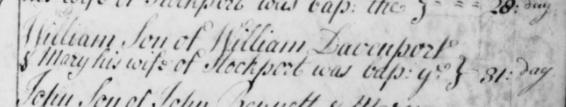 his wife of Stockport was bap: the } - - 28: day
William Son of William Davenport
& Mary his wife of Stockport was bap: ye } - 31: day
John Son of John Bennett & Mary